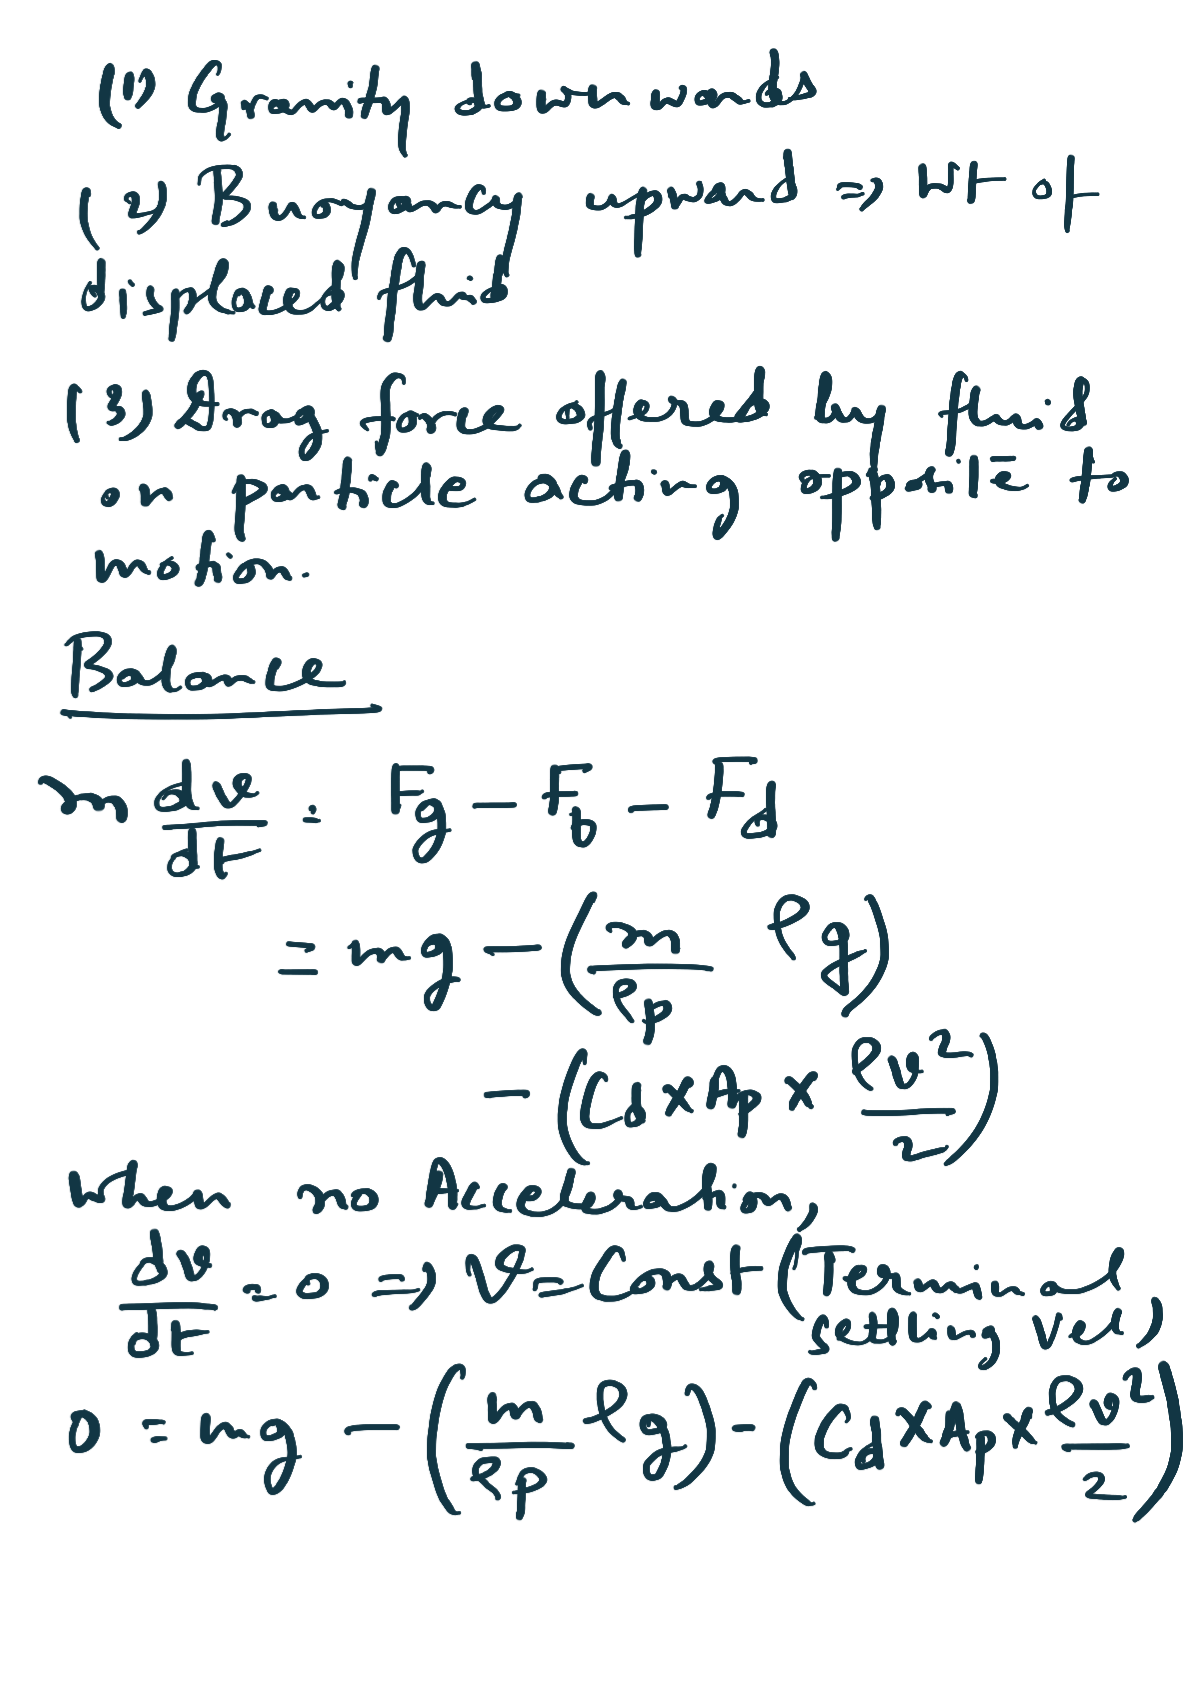 (1) Gravity downwards
(2) Buoyancy upward => wt of
displaced fluid
(3) Drag force offered by fluid
on particle acting opposite to
motion.
Balance
m dv/dt = Fg - Fb - Fd
= mg - (m/ρp ρg)
- (Cd × Ap × ρv²/2)
when no Acceleration,
dv/dt = 0 => v = Const (Terminal
settling vel)
0 = mg - (m/ρp ρg) - (Cd × Ap × ρv²/2)